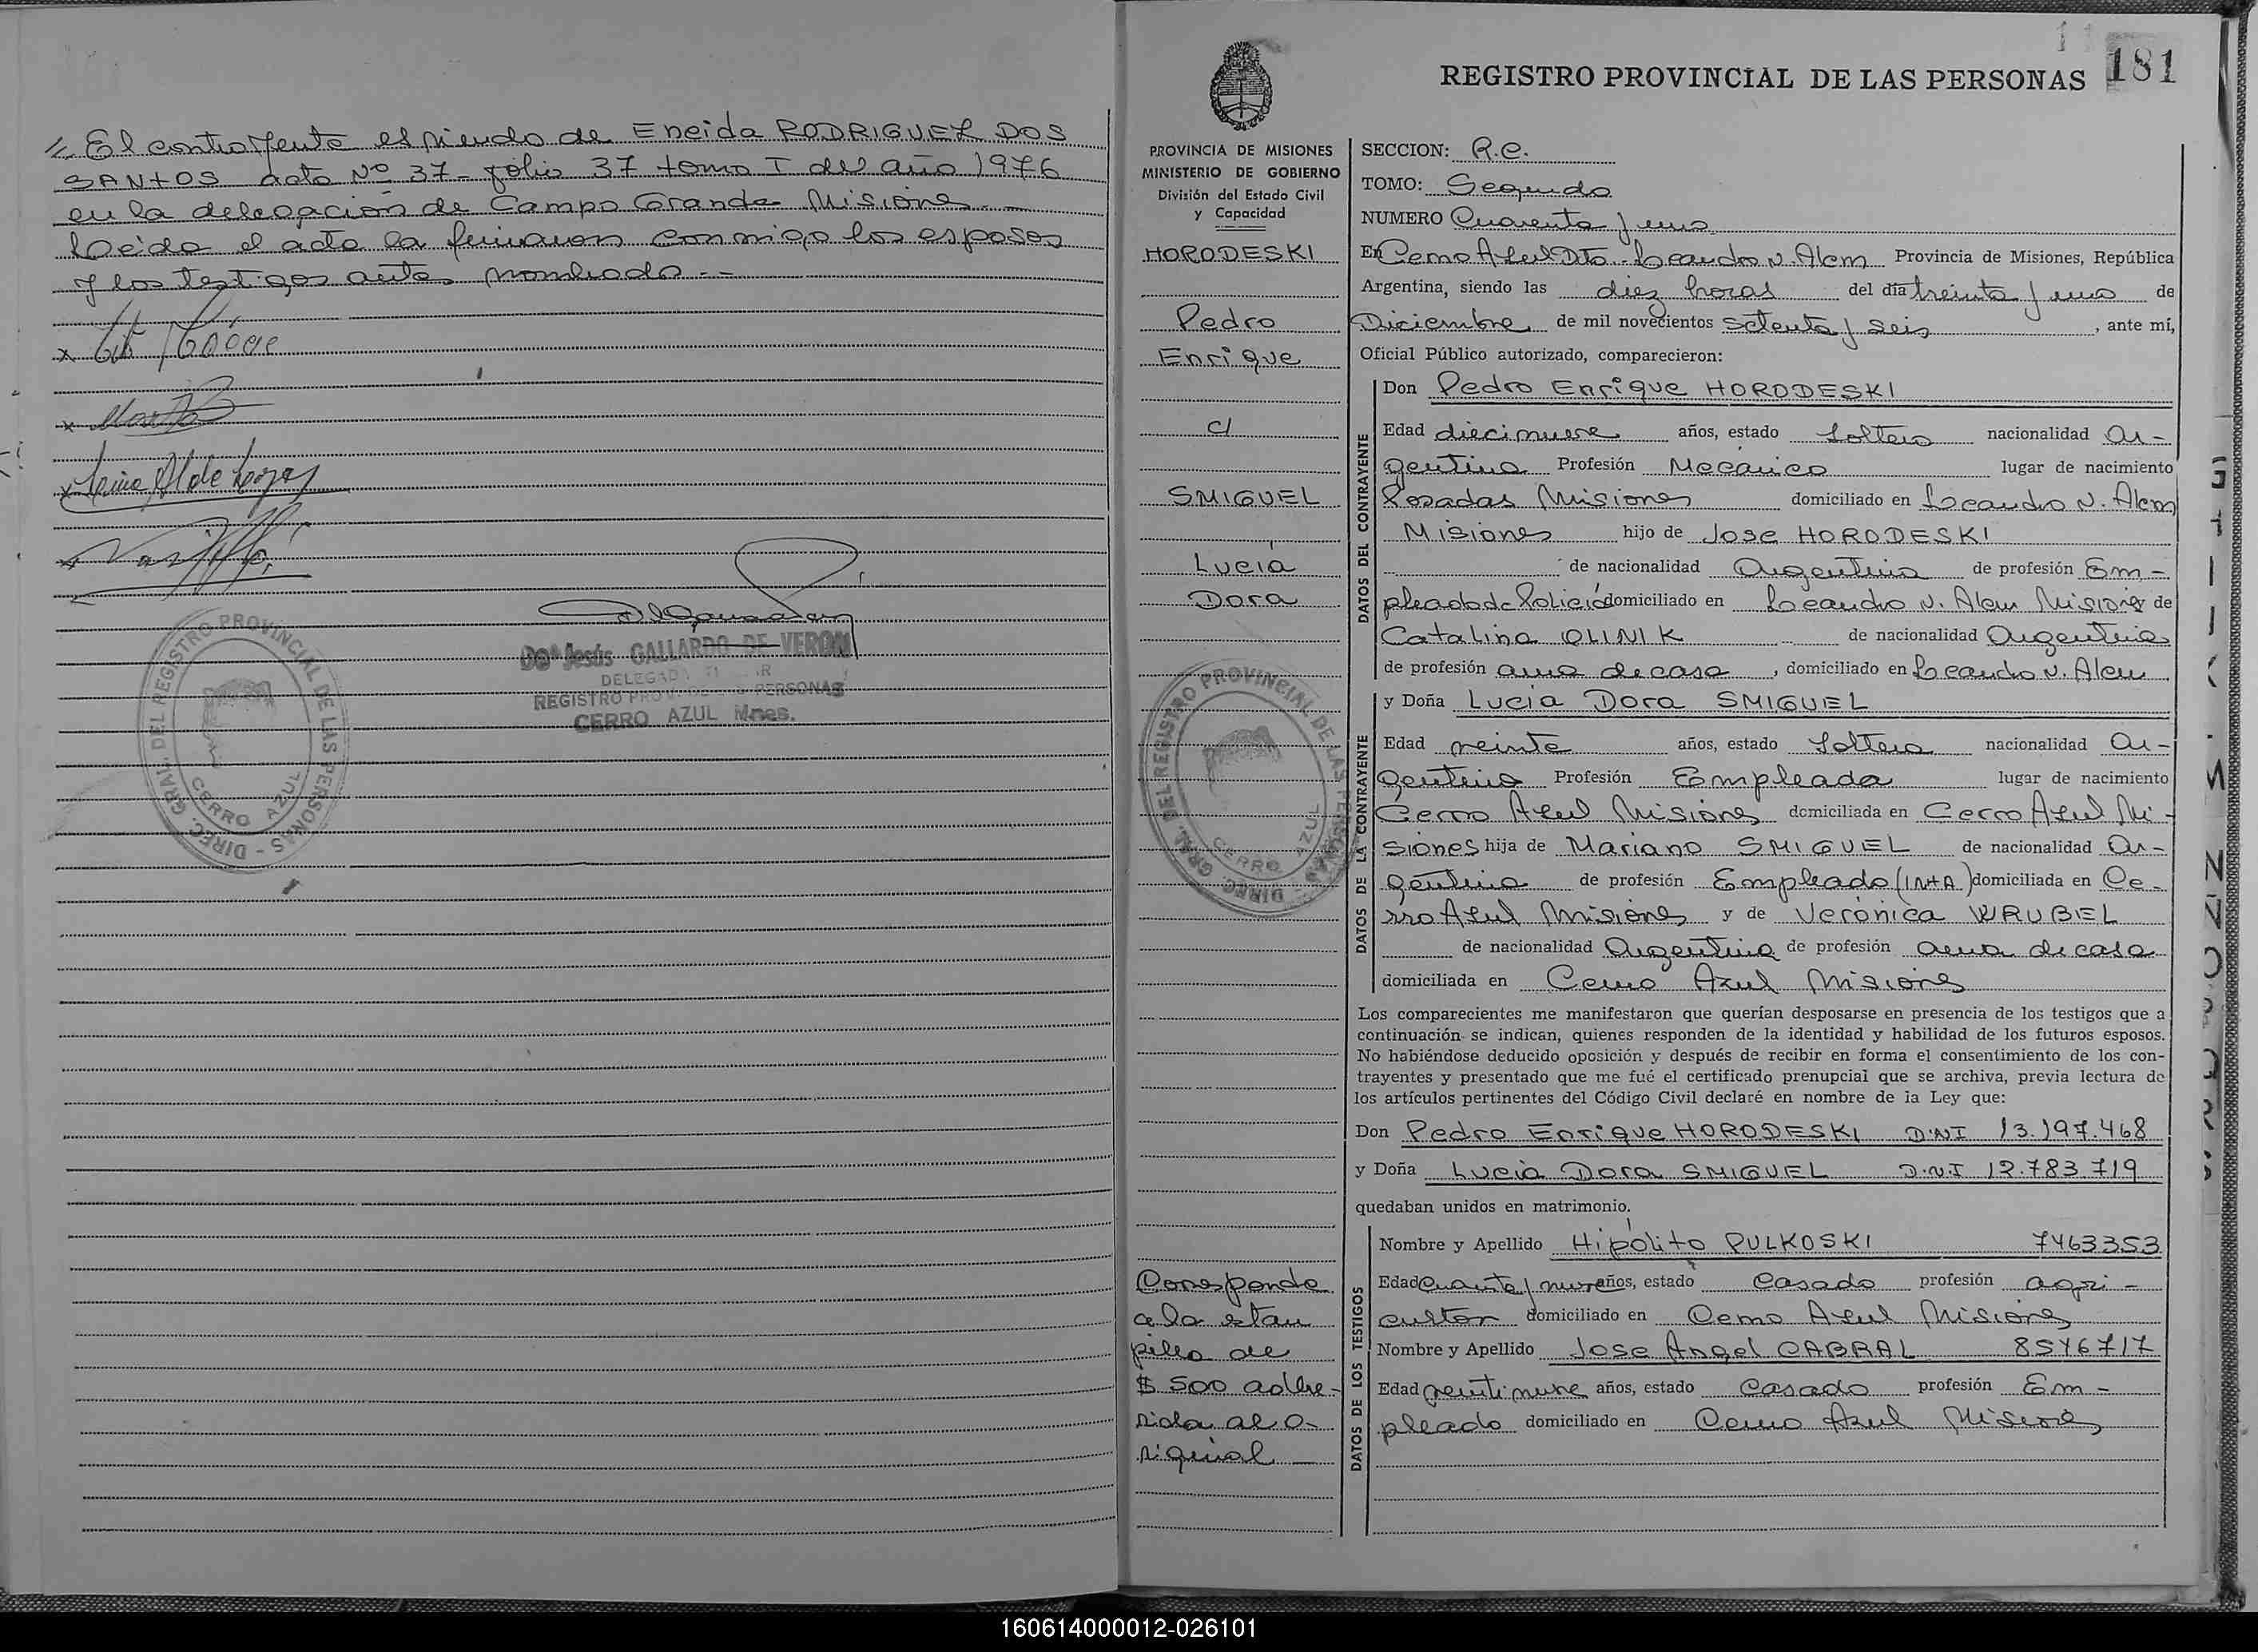 El contrayente es viudo de Eneida RODRIGUEZ DOS
SANTOS acta Nº 37 - folio 37 tomo I del año 1976
en la delegación de Campo Grande Misiones
Leida el acta la firmaron conmigo los esposos
y los testigos antes nombrado --
Doª Jesús GALLARDO DE VERON
REGISTRO PROV. DE LAS PERSONAS
CERRO AZUL Mnes.
DIREC. GRAL. DEL REGISTRO PROVINCIAL DE LAS PERSONAS
CERRO AZUL
181
REGISTRO PROVINCIAL DE LAS PERSONAS
PROVINCIA DE MISIONES
MINISTERIO DE GOBIERNO
División del Estado Civil
y Capacidad
HORODESKI
Pedro
Enrique
c/
SMIGUEL
Lucía
Dora
DIREC. GRAL. DEL REGISTRO PROVINCIAL DE LAS PERSONAS
CERRO AZUL
Corresponde
a la estam
pilla de
$ 500 adhe-
rida al o-
riginal
SECCION: R.C.
TOMO: Segundo
NUMERO Cuarenta y uno
En Cerro Azul Dto. Leandro N. Alem Provincia de Misiones, República
Argentina, siendo las diez horas del día treinta y uno de
Diciembre de mil novecientos setenta y seis, ante mí,
Oficial Público autorizado, comparecieron:
DATOS DEL CONTRAYENTE
Don Pedro Enrique HORODESKI
Edad diecinueve años, estado Soltero nacionalidad Ar-
gentina Profesión Mecánico lugar de nacimiento
Posadas Misiones domiciliado en Leandro N. Alem
Misiones hijo de Jose HORODESKI
de nacionalidad Argentina de profesión Em-
pleado de Policía domiciliado en Leandro N. Alem Misiones de
Catalina OLINIK de nacionalidad Argentina
de profesión ama de casa, domiciliado en Leandro N. Alem
y Doña Lucia Dora SMIGUEL
DATOS DE LA CONTRAYENTE
Edad veinte años, estado Soltera nacionalidad Ar-
gentina Profesión Empleada lugar de nacimiento
Cerro Azul Misiones domiciliada en Cerro Azul Mi-
siones hija de Mariano SMIGUEL de nacionalidad Ar-
gentina de profesión Empleado (INTA) domiciliada en Ce-
rro Azul Misiones y de Verónica WRUBEL
de nacionalidad Argentina de profesión ama de casa
domiciliada en Cerro Azul Misiones
Los comparecientes me manifestaron que querían desposarse en presencia de los testigos que a
continuación se indican, quienes responden de la identidad y habilidad de los futuros esposos.
No habiéndose deducido oposición y después de recibir en forma el consentimiento de los con-
trayentes y presentado que me fué el certificado prenupcial que se archiva, previa lectura de
los artículos pertinentes del Código Civil declaré en nombre de la Ley que:
Don Pedro Enrique HORODESKI D.N.I 13.197.468
y Doña Lucia Dora SMIGUEL D.N.I 12.783.719
quedaban unidos en matrimonio.
DATOS DE LOS TESTIGOS
Nombre y Apellido Hipólito PULKOSKI 7463353
Edad cuarenta y nueve años, estado Casado profesión agri-
cultor domiciliado en Cerro Azul Misiones
Nombre y Apellido Jose Angel CABRAL 8546717
Edad veintinueve años, estado Casado profesión Em-
pleado domiciliado en Cerro Azul Misiones
160614000012-026101